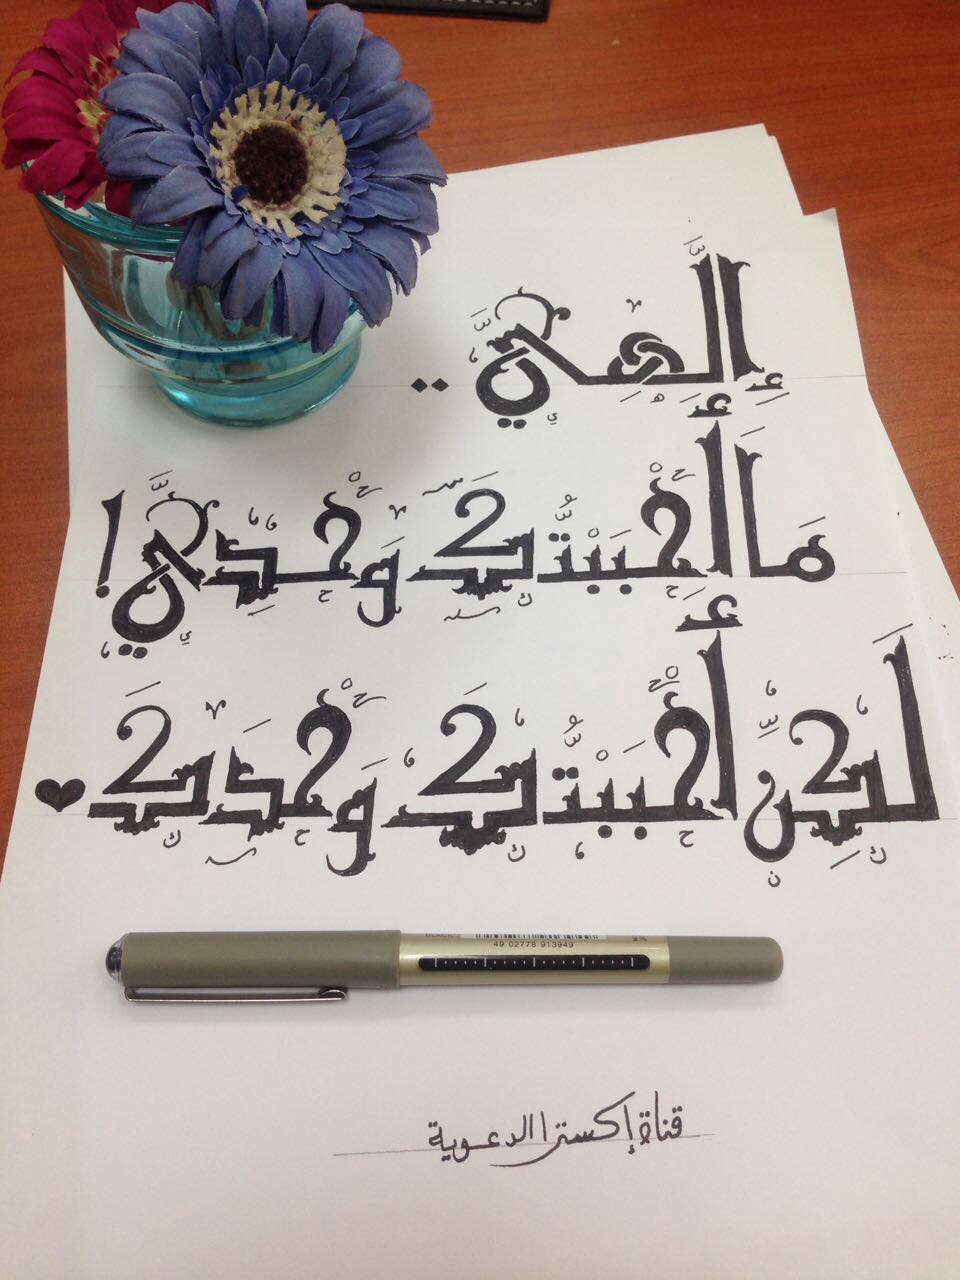 إِلَٰهِي ..
مَا أَحْبَبْتُكَ وَحْدِي !
لَكِنْ أَحْبَبْتُكَ وَحْدَكَ
49 02778 913949
قناة إكسترا الدعوية